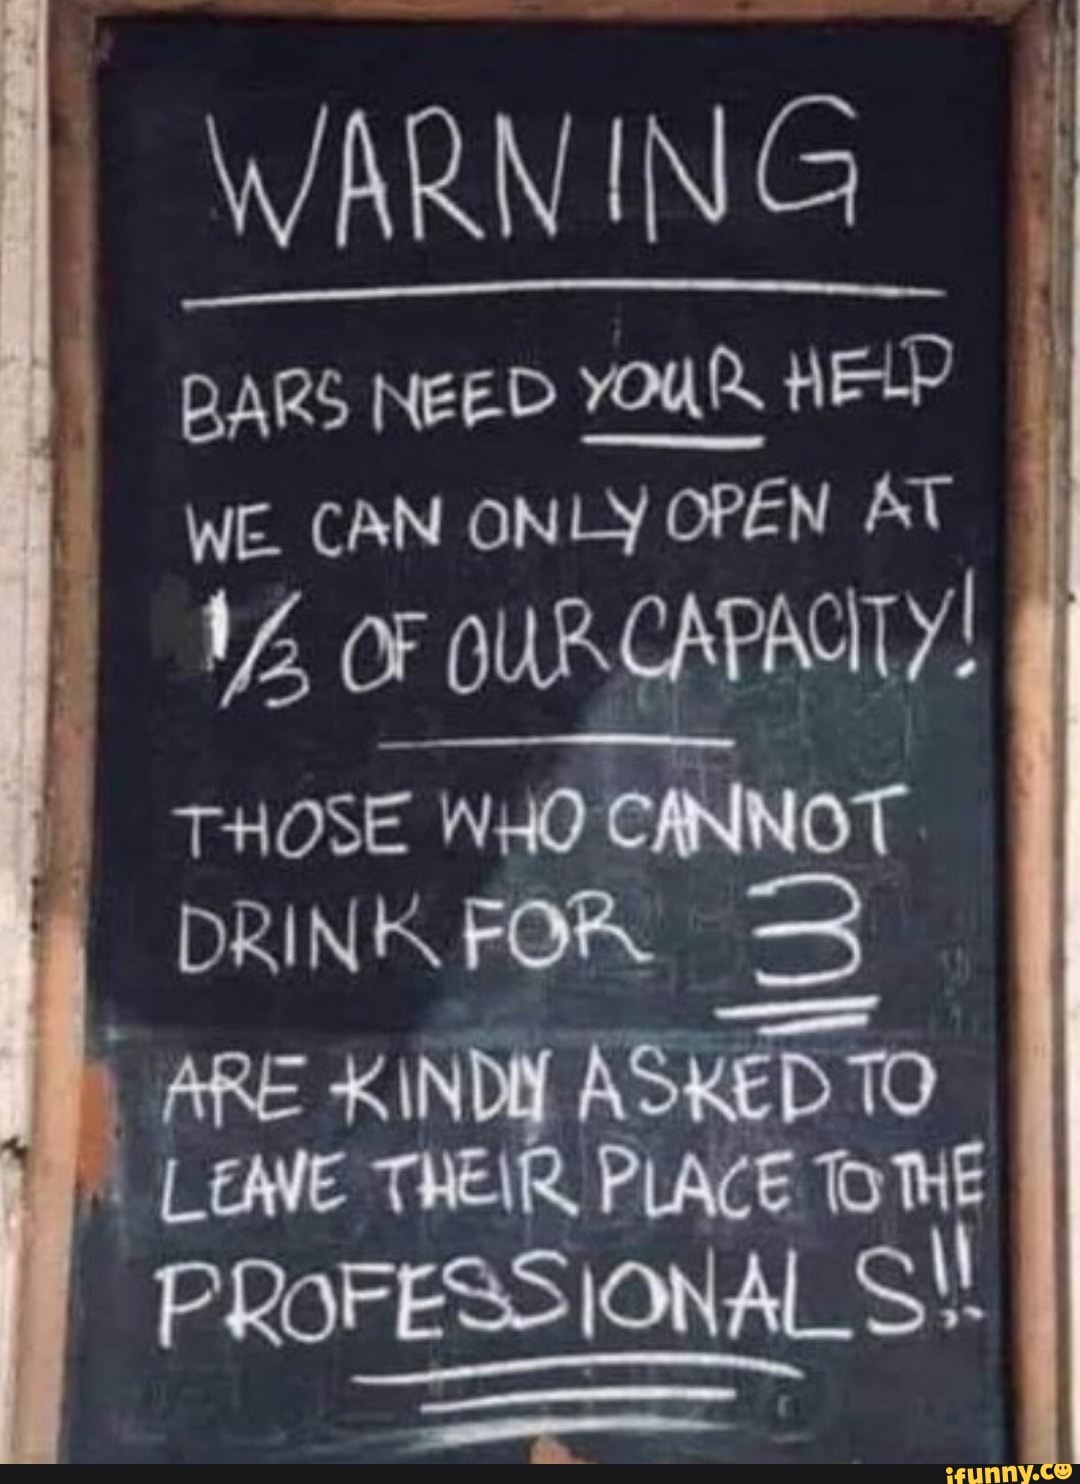 WARNING
BARS NEED YOUR HELP
WE CAN ONLY OPEN AT
1/3 OF OUR CAPACITY!
THOSE WHO CANNOT
DRINK FOR 3
ARE KINDLY ASKED TO
LEAVE THEIR PLACE TO THE
PROFESSIONALS!!
ifunny.co